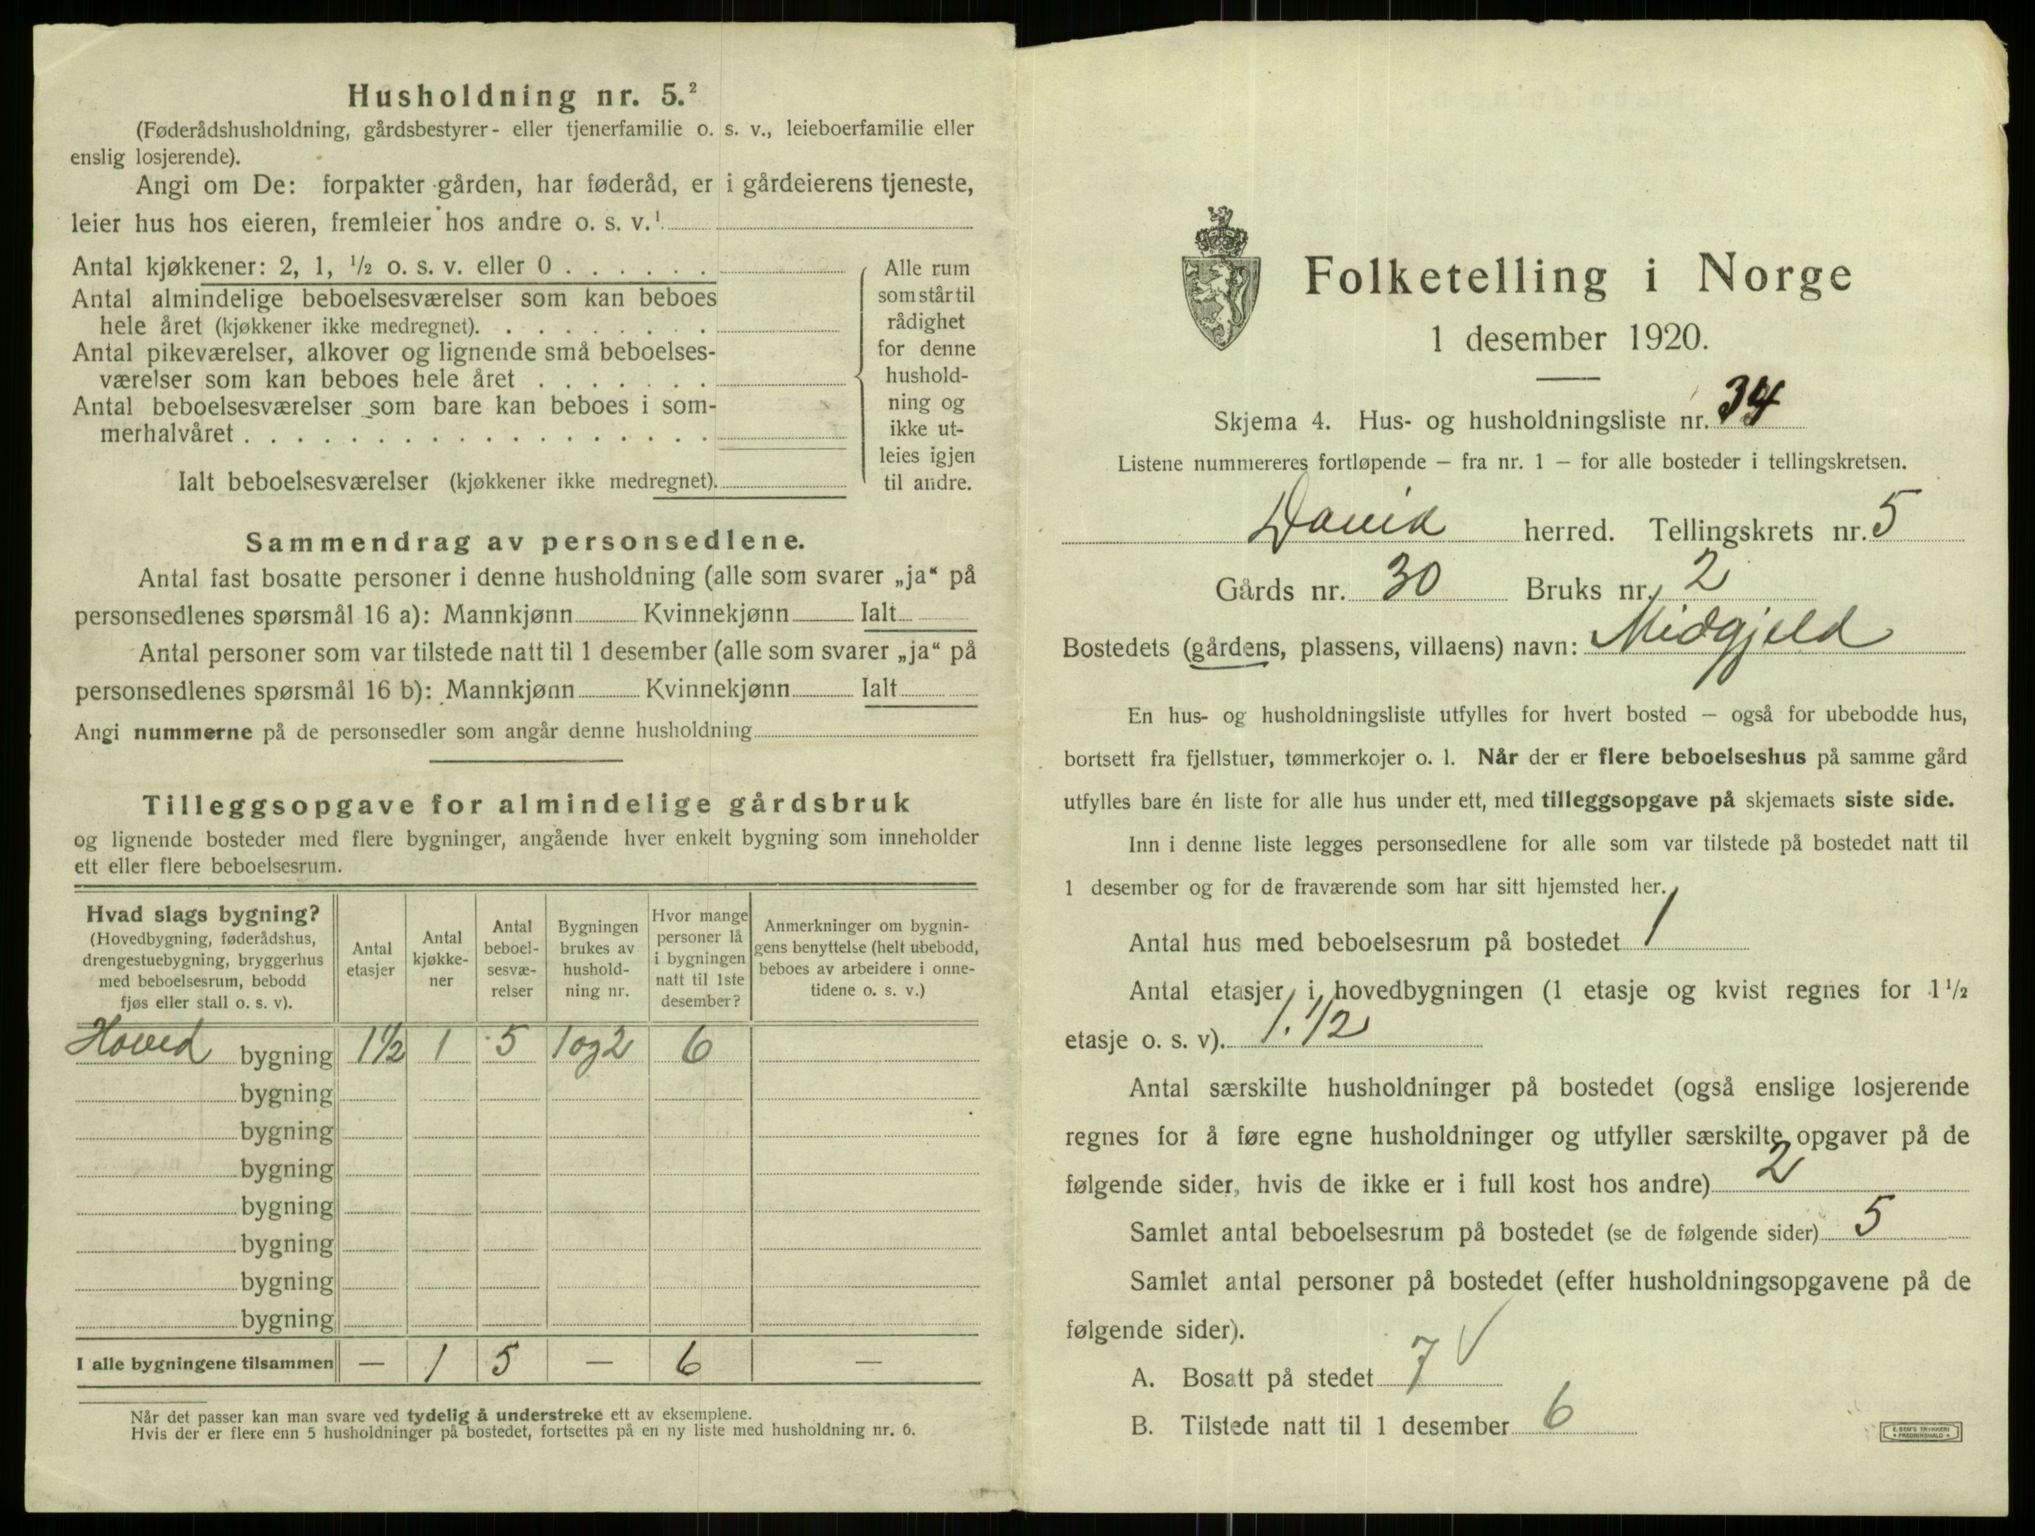 Husholdning nr. 5.²
(Føderådshusholdning, gårdsbestyrer- eller tjenerfamilie o. s. v., leieboerfamilie eller
enslig losjerende).
Angi om De: forpakter gården, har føderåd, er i gårdeierens tjeneste,
leier hus hos eieren, fremleier hos andre o. s. v.¹
Antal kjøkkener: 2, 1, ½ o. s. v. eller 0 . . . . . .
Antal almindelige beboelsesværelser som kan beboes
hele året (kjøkkener ikke medregnet). . . . . . . . .
Antal pikeværelser, alkover og lignende små beboelses-
værelser som kan beboes hele året . . . . . . .
Antal beboelsesværelser som bare kan beboes i som-
merhalvåret . . . . . . . . . . . . . . . . . .
Ialt beboelsesværelser (kjøkkener ikke medregnet).
Alle rum
som står til
rådighet
for denne
hushold-
ning og
ikke ut-
leies igjen
til andre.
Sammendrag av personsedlene.
Antal fast bosatte personer i denne husholdning (alle som svarer „ja“ på
personsedlenes spørsmål 16 a): Mannkjønn Kvinnekjønn Ialt
Antal personer som var tilstede natt til 1 desember (alle som svarer „ja“ på
personsedlenes spørsmål 16 b): Mannkjønn Kvinnekjønn Ialt
Angi nummerne på de personsedler som angår denne husholdning
Tilleggsopgave for almindelige gårdsbruk
og lignende bosteder med flere bygninger, angående hver enkelt bygning som inneholder
ett eller flere beboelsesrum.
Hvad slags bygning?
(Hovedbygning, føderådshus,
drengestuebygning, bryggerhus
med beboelsesrum, bebodd
fjøs eller stall o. s. v).
Antal
etasjer
Antal
kjøkke-
ner
Antal
beboel-
sesvæ-
relser
Bygningen
brukes av
hushold-
ning nr.
Hvor mange
personer lå
i bygningen
natt til 1ste
desember?
Anmerkninger om bygnin-
gens benyttelse (helt ubebodd,
beboes av arbeidere i onne-
tidene o. s. v.)
Hoved bygning 1½ 1 5 1 og 2 6
bygning
bygning
bygning
bygning
bygning
bygning
bygning
I alle bygningene tilsammen — 1 5 — 6 —
Når det passer kan man svare ved tydelig å understreke ett av eksemplene.
Hvis der er flere enn 5 husholdninger på bostedet, fortsettes på en ny liste med husholdning nr. 6.
Folketelling i Norge
1 desember 1920.
Skjema 4. Hus- og husholdningsliste nr. 34
Listene nummereres fortløpende — fra nr. 1 — for alle bosteder i tellingskretsen.
Davik herred. Tellingskrets nr. 5
Gårds nr. 30 Bruks nr. 2
Bostedets (gårdens, plassens, villaens) navn: Midgjeld
En hus- og husholdningsliste utfylles for hvert bosted — også for ubebodde hus,
bortsett fra fjellstuer, tømmerkojer o. l. Når der er flere beboelseshus på samme gård
utfylles bare én liste for alle hus under ett, med tilleggsopgave på skjemaets siste side.
Inn i denne liste legges personsedlene for alle som var tilstede på bostedet natt til
1 desember og for de fraværende som har sitt hjemsted her.
Antal hus med beboelsesrum på bostedet 1
Antal etasjer i hovedbygningen (1 etasje og kvist regnes for 1½
etasje o. s. v). 1.½
Antal særskilte husholdninger på bostedet (også enslige losjerende
regnes for å føre egne husholdninger og utfyller særskilte opgaver på de
følgende sider, hvis de ikke er i full kost hos andre) 2
Samlet antal beboelsesrum på bostedet (se de følgende sider) 5
Samlet antal personer på bostedet (efter husholdningsopgavene på de
følgende sider).
A. Bosatt på stedet 7 √
B. Tilstede natt til 1 desember 6
E. SEM'S TRYKKERI
FREDRIKSHALD